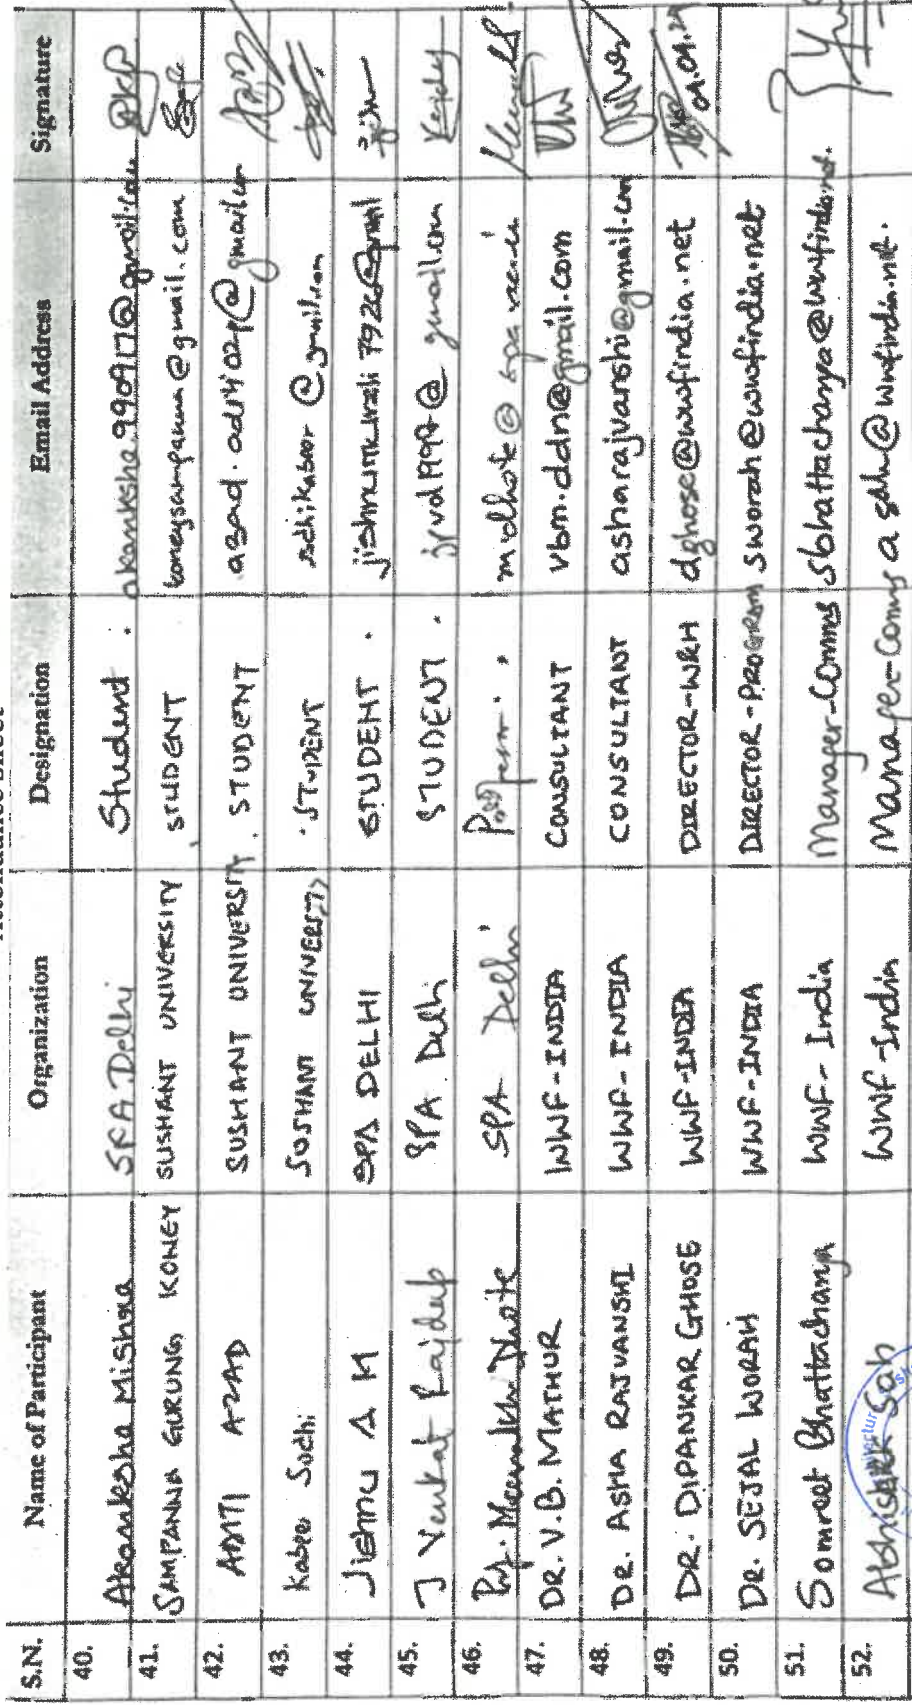 Attendance Sheet
S.N. Name of Participant Organization Designation Email Address Signature
40. Akanksha Mishra SPA Delhi Student. akanksha.990917@gmail.com
41. SAMPANNA GURUNG KONEY SUSHANT UNIVERSITY STUDENT koneysampanna@gmail.com
42. ADITI AZAD SUSHANT UNIVERSITY. STUDENT azad.aditi029@gmail.com
43. Kabeer Sodhi SUSHANT UNIVERSITY STUDENT sdhikabeer@gmail.com
44. Jishnu A M SPA DELHI STUDENT. jishnumurali7926@gmail
45. J Venkat Rajdeep SPA Delhi STUDENT. jrvd1997@gmail.com
46. Prof. Meenakshi Dhote SPA Delhi Professor mdhote@spa.ac.in
47. DR. V.B. MATHUR WWF-INDIA CONSULTANT vbm.ddn@gmail.com
48. DR. ASHA RAJVANSHI WWF-INDIA CONSULTANT asharajvanshi@gmail.com
49. DR. DIPANKAR GHOSE WWF-INDIA DIRECTOR-WRH dghose@wwfindia.net 09.09.24
50. DR. SEJAL WORAH WWF-INDIA DIRECTOR-PROGRAM sworah@wwfindia.net
51. Somreet Bhattacharya WWF-India Manager-Comms sbhattacharya@wwfindia.net.
52. Abhishek Sah WWF-India Manager-Comms asah@wwfindia.net.